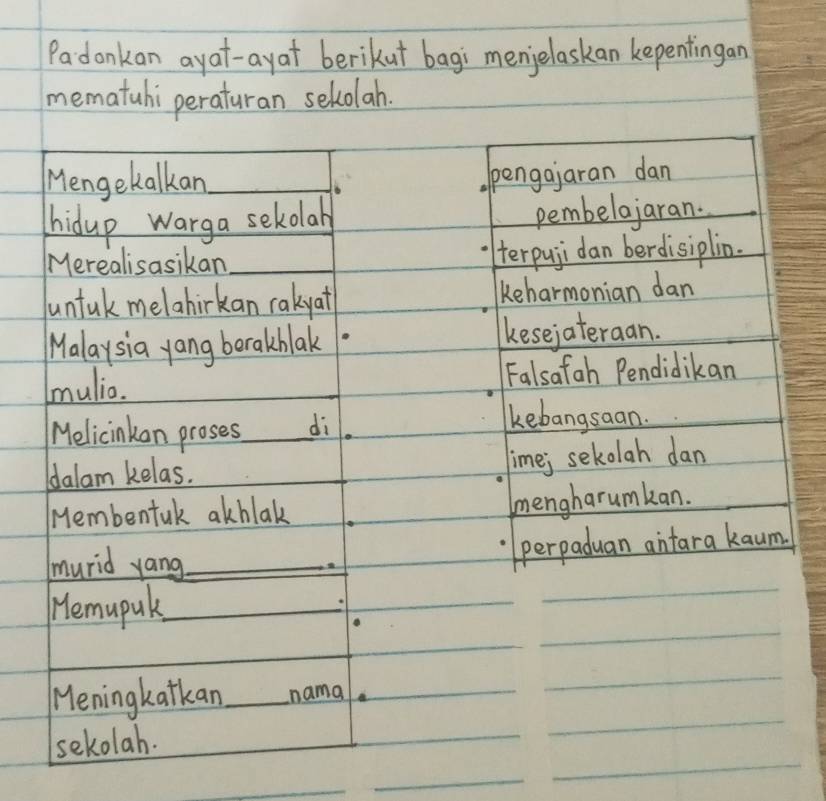 Padankan ayat-ayat berikut bagi menjelaskan kepentingan
mematuhi peraturan sekolah.
Mengekalkan______.
hidup warga sekolah
Merealisasikan______
untuk melahirkan rakyat
Malaysia yang berakhlak
mulia.
Melicinkan proses____di
dalam kelas.
Membentuk akhlak
murid yang______.
Memupuk______.
Meningkatkan____nama
sekolah.
pengajaran dan
pembelajaran.
terpuji dan berdisiplin.
keharmonian dan
kesejateraan.
Falsafah Pendidikan
kebangsaan.
imej sekolah dan
mengharumkan.
perpaduan antara kaum.